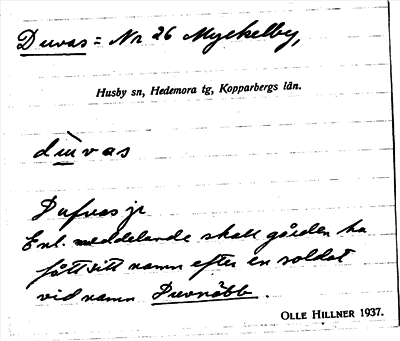 Duvas = No 26 Myckelby,
Husby sn, Hedemora tg, Kopparbergs län.
dùvas
Dufvas jr
Enl. meddelande skall gården ha
fått sitt namn efter en soldat
vid namn Duvnäbb.
OLLE HILLNER 1937.